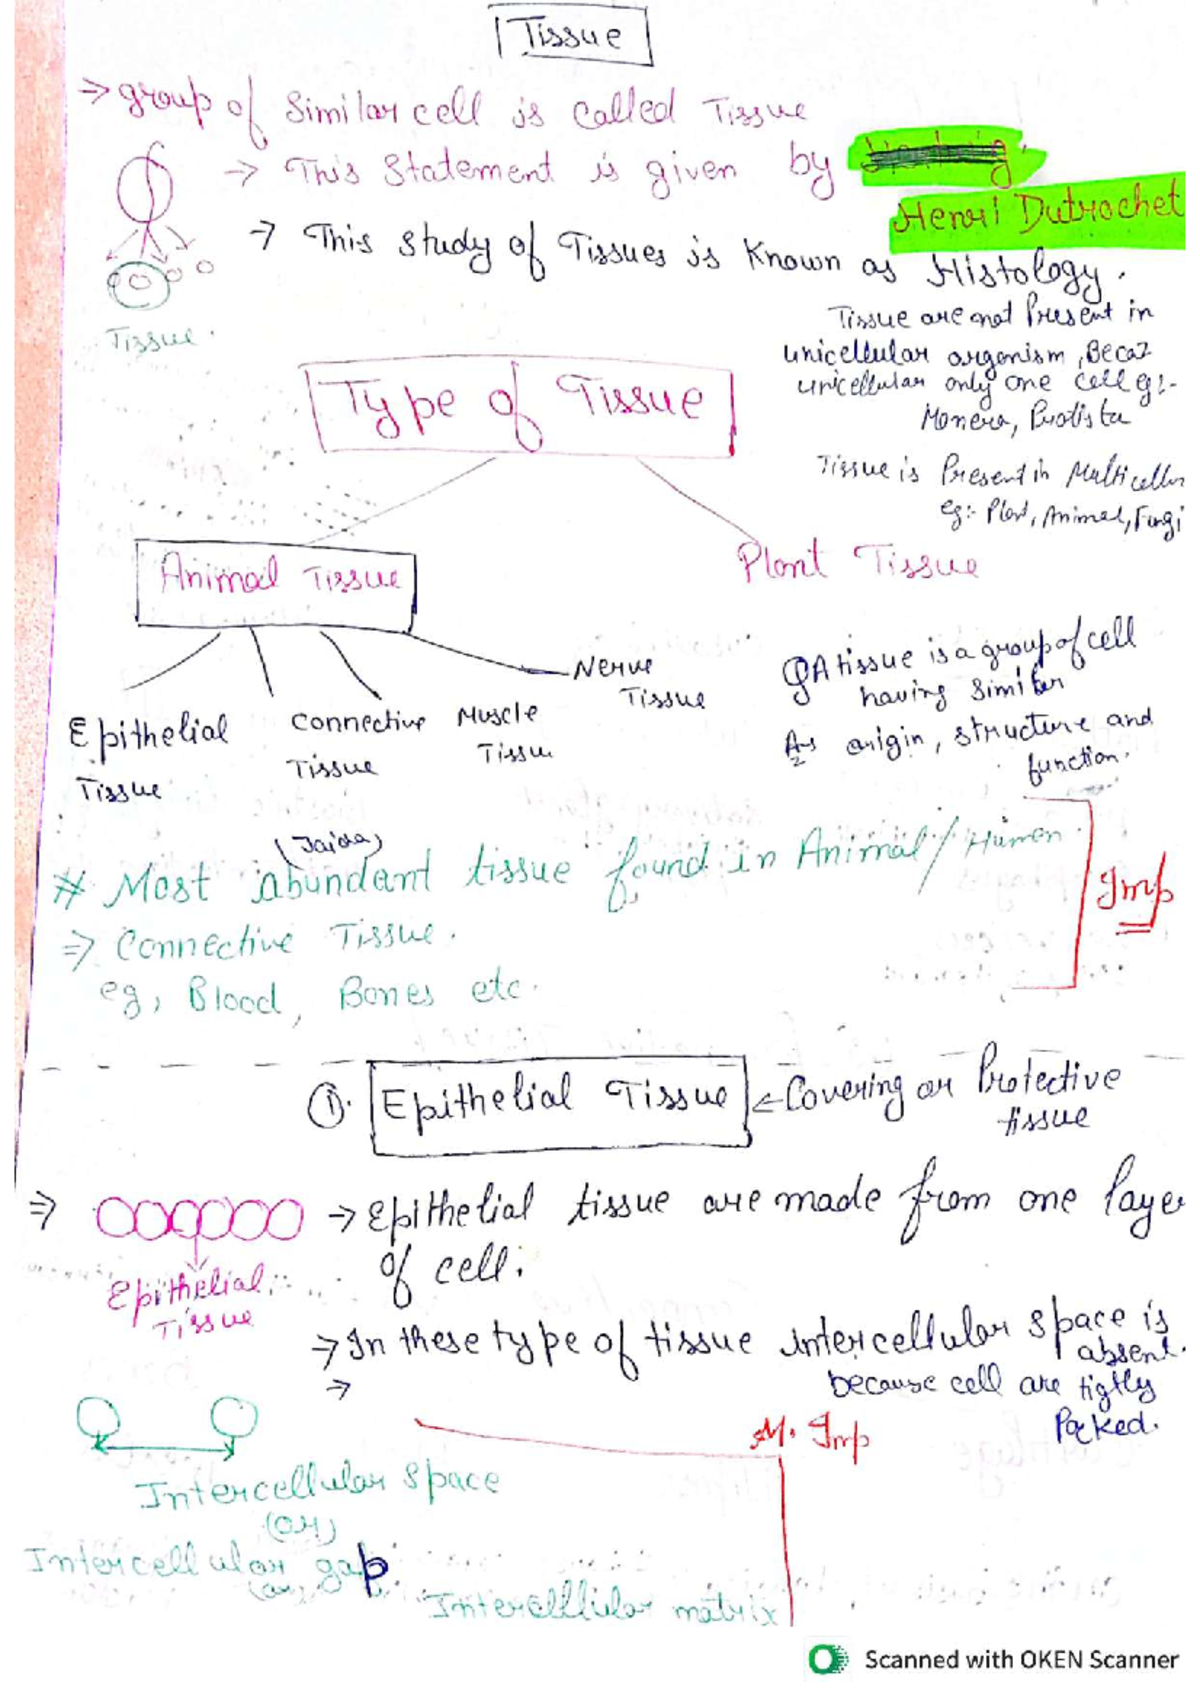 Tissue
→ group of Similar cell is called Tissue
→ This Statement is given by
Henri Dutrochet
→ This Study of Tissues is Known as Histology.
Tissue.
Tissue are not Present in
unicellular orgenism, Becaz
unicellular only one cell eg:-
Monera, Protista
Type of Tissue
Tissue is Present in Multicellur
eg:- Plant, Animal, Fungi
Animal Tissue
Plant Tissue
Epithelial Tissue
Connective Tissue
Muscle Tissue
Nerve Tissue
A tissue is a group of cell
having Similar
origin, structure and
function.
(Jaida)
# Most abundant tissue found in Animal/Human
Imp
⇒ Connective Tissue.
eg, Blood, Bones etc.
①. Epithelial Tissue ← Covering or Protective
tissue
⇒ → Epithelial tissue are made from one laye
of cell.
Epithelial
Tissue
→ In these type of tissue intercellular space is
absent.
→ because cell are tigtly
Packed.
M. Imp
Intercellular Space
(or)
Intercellular gap.
(or)
Intercelllular matrix
Scanned with OKEN Scanner